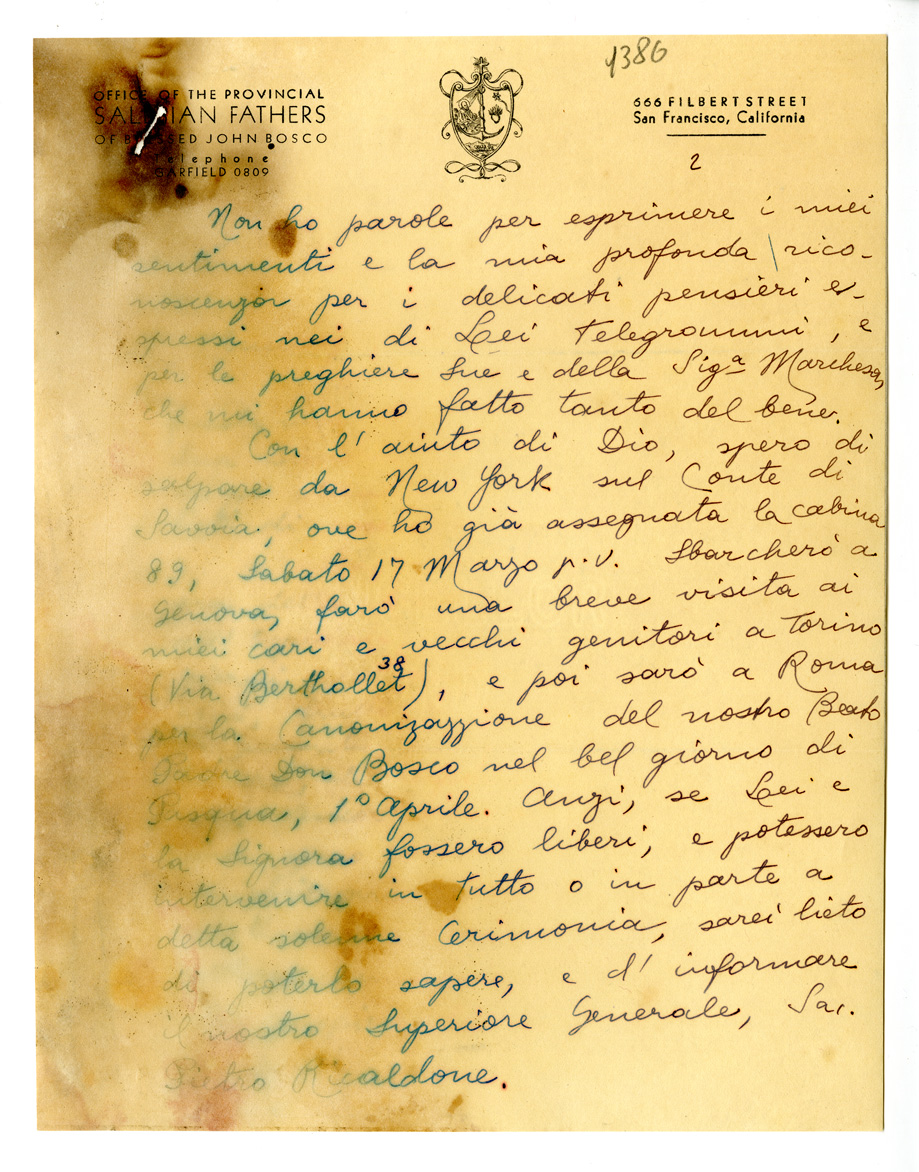 1386
OFFICE OF THE PROVINCIAL
SALESIAN FATHERS
OF BLESSED JOHN BOSCO
Telephone
GARFIELD 0809
666 FILBERT STREET
San Francisco, California
2
Non ho parole per esprimere i miei
sentimenti e la mia profonda rico-
noscenza per i delicati pensieri e-
spressi nei di Lei Telegrammi, e
per le preghiere Sue e della Sigª Marchesa,
che mi hanno fatto tanto del bene.
Con l' aiuto di Dio, spero di
salpare da New York sul Conte di
Savoia, ove ho già assegnata la cabina
89, Sabato 17 Marzo p.v. Sbarcherò a
Genova, farò una breve visita ai
miei cari e vecchi genitori a Torino
(Via Berthollet 38), e poi sarò a Roma
per la Canonizzazione del nostro Beato
Padre Don Bosco nel bel giorno di
Pasqua, 1º Aprile. Anzi, se Lei e
la Signora fossero liberi, e potessero
intervenire in tutto o in parte a
detta solenne Cerimonia, sarei lieto
di poterlo sapere, e d' informare
il nostro Superiore Generale, Sac.
Pietro Ricaldone.